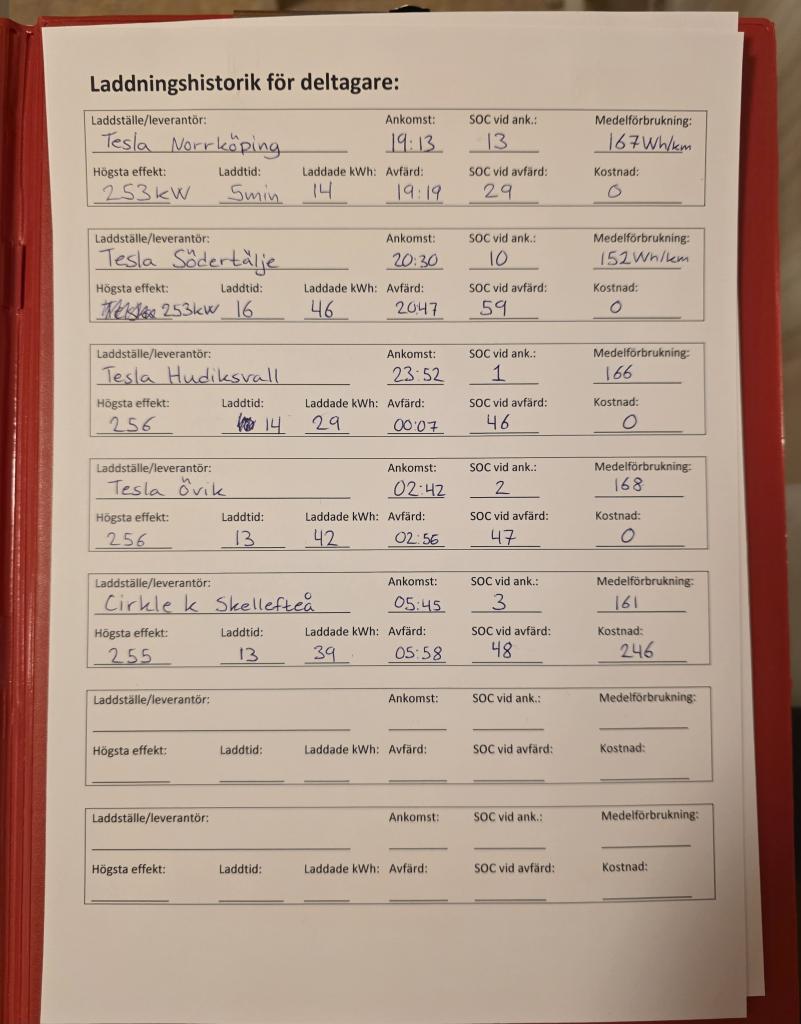 Laddningshistorik för deltagare:
Laddställe/leverantör: Ankomst: SOC vid ank.: Medelförbrukning:
Tesla Norrköping 19:13 13 167Wh/km
Högsta effekt: Laddtid: Laddade kWh: Avfärd: SOC vid avfärd: Kostnad:
253kW 5min 14 19:19 29 0
Laddställe/leverantör: Ankomst: SOC vid ank.: Medelförbrukning:
Tesla Södertälje 20:30 10 152Wh/km
Högsta effekt: Laddtid: Laddade kWh: Avfärd: SOC vid avfärd: Kostnad:
253kW 16 46 2047 59 0
Laddställe/leverantör: Ankomst: SOC vid ank.: Medelförbrukning:
Tesla Hudiksvall 23:52 1 166
Högsta effekt: Laddtid: Laddade kWh: Avfärd: SOC vid avfärd: Kostnad:
256 14 29 00:07 46 0
Laddställe/leverantör: Ankomst: SOC vid ank.: Medelförbrukning:
Tesla Övik 02:42 2 168
Högsta effekt: Laddtid: Laddade kWh: Avfärd: SOC vid avfärd: Kostnad:
256 13 42 02:56 47 0
Laddställe/leverantör: Ankomst: SOC vid ank.: Medelförbrukning:
Cirkle k Skellefteå 05:45 3 161
Högsta effekt: Laddtid: Laddade kWh: Avfärd: SOC vid avfärd: Kostnad:
255 13 39 05:58 48 246
Laddställe/leverantör: Ankomst: SOC vid ank.: Medelförbrukning:
Högsta effekt: Laddtid: Laddade kWh: Avfärd: SOC vid avfärd: Kostnad:
Laddställe/leverantör: Ankomst: SOC vid ank.: Medelförbrukning:
Högsta effekt: Laddtid: Laddade kWh: Avfärd: SOC vid avfärd: Kostnad: